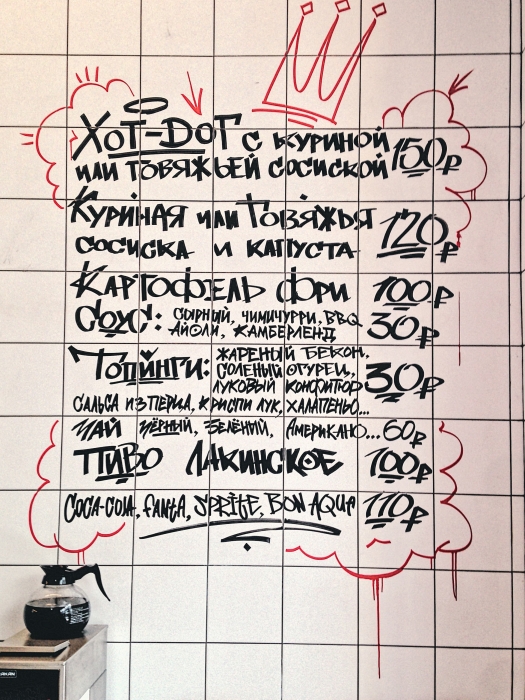 ХОТ-DОГ С КУРИНОЙ
ИЛИ ГОВЯЖЬЕЙ СОСИСКОЙ 150₽
КУРИНАЯ ИЛИ ГОВЯЖЬЯ
СОСИСКА И КАПУСТА 120₽
КАРТОФЕЛЬ ФРИ 100₽
СОУС: СЫРНЫЙ, ЧИМИЧУРРИ, BBQ,
АЙОЛИ, КАМБЕРЛЕНД 30₽
ТОПИНГИ: ЖАРЕНЫЙ БЕКОН,
СОЛЕНЫЙ ОГУРЕЦ,
ЛУКОВЫЙ КОНФИТЮР 30₽
САЛЬСА ИЗ ПЕРЦА, КРИСПИ ЛУК, ХАЛАПЕНЬО...
ЧАЙ ЧЁРНЫЙ, ЗЕЛЁНИЙ, АМЕРИКАНО... 60₽
ПИВО ЛАКИНСКОЕ 100₽
COCA-COLA, FANTA, SPRITE, BON AQUA 110₽